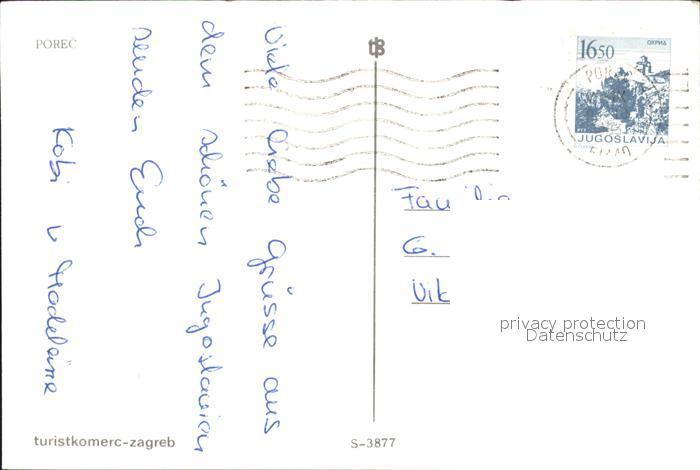 POREČ
Viele liebe Grüsse aus
dem schönen Jugoslavien
senden Euch
Kobi u Madeleine
1650
ОХРИД
JUGOSLAVIJA
Familie
G.
privacy protection
Datenschutz
turistkomerc-zagreb
S-3877